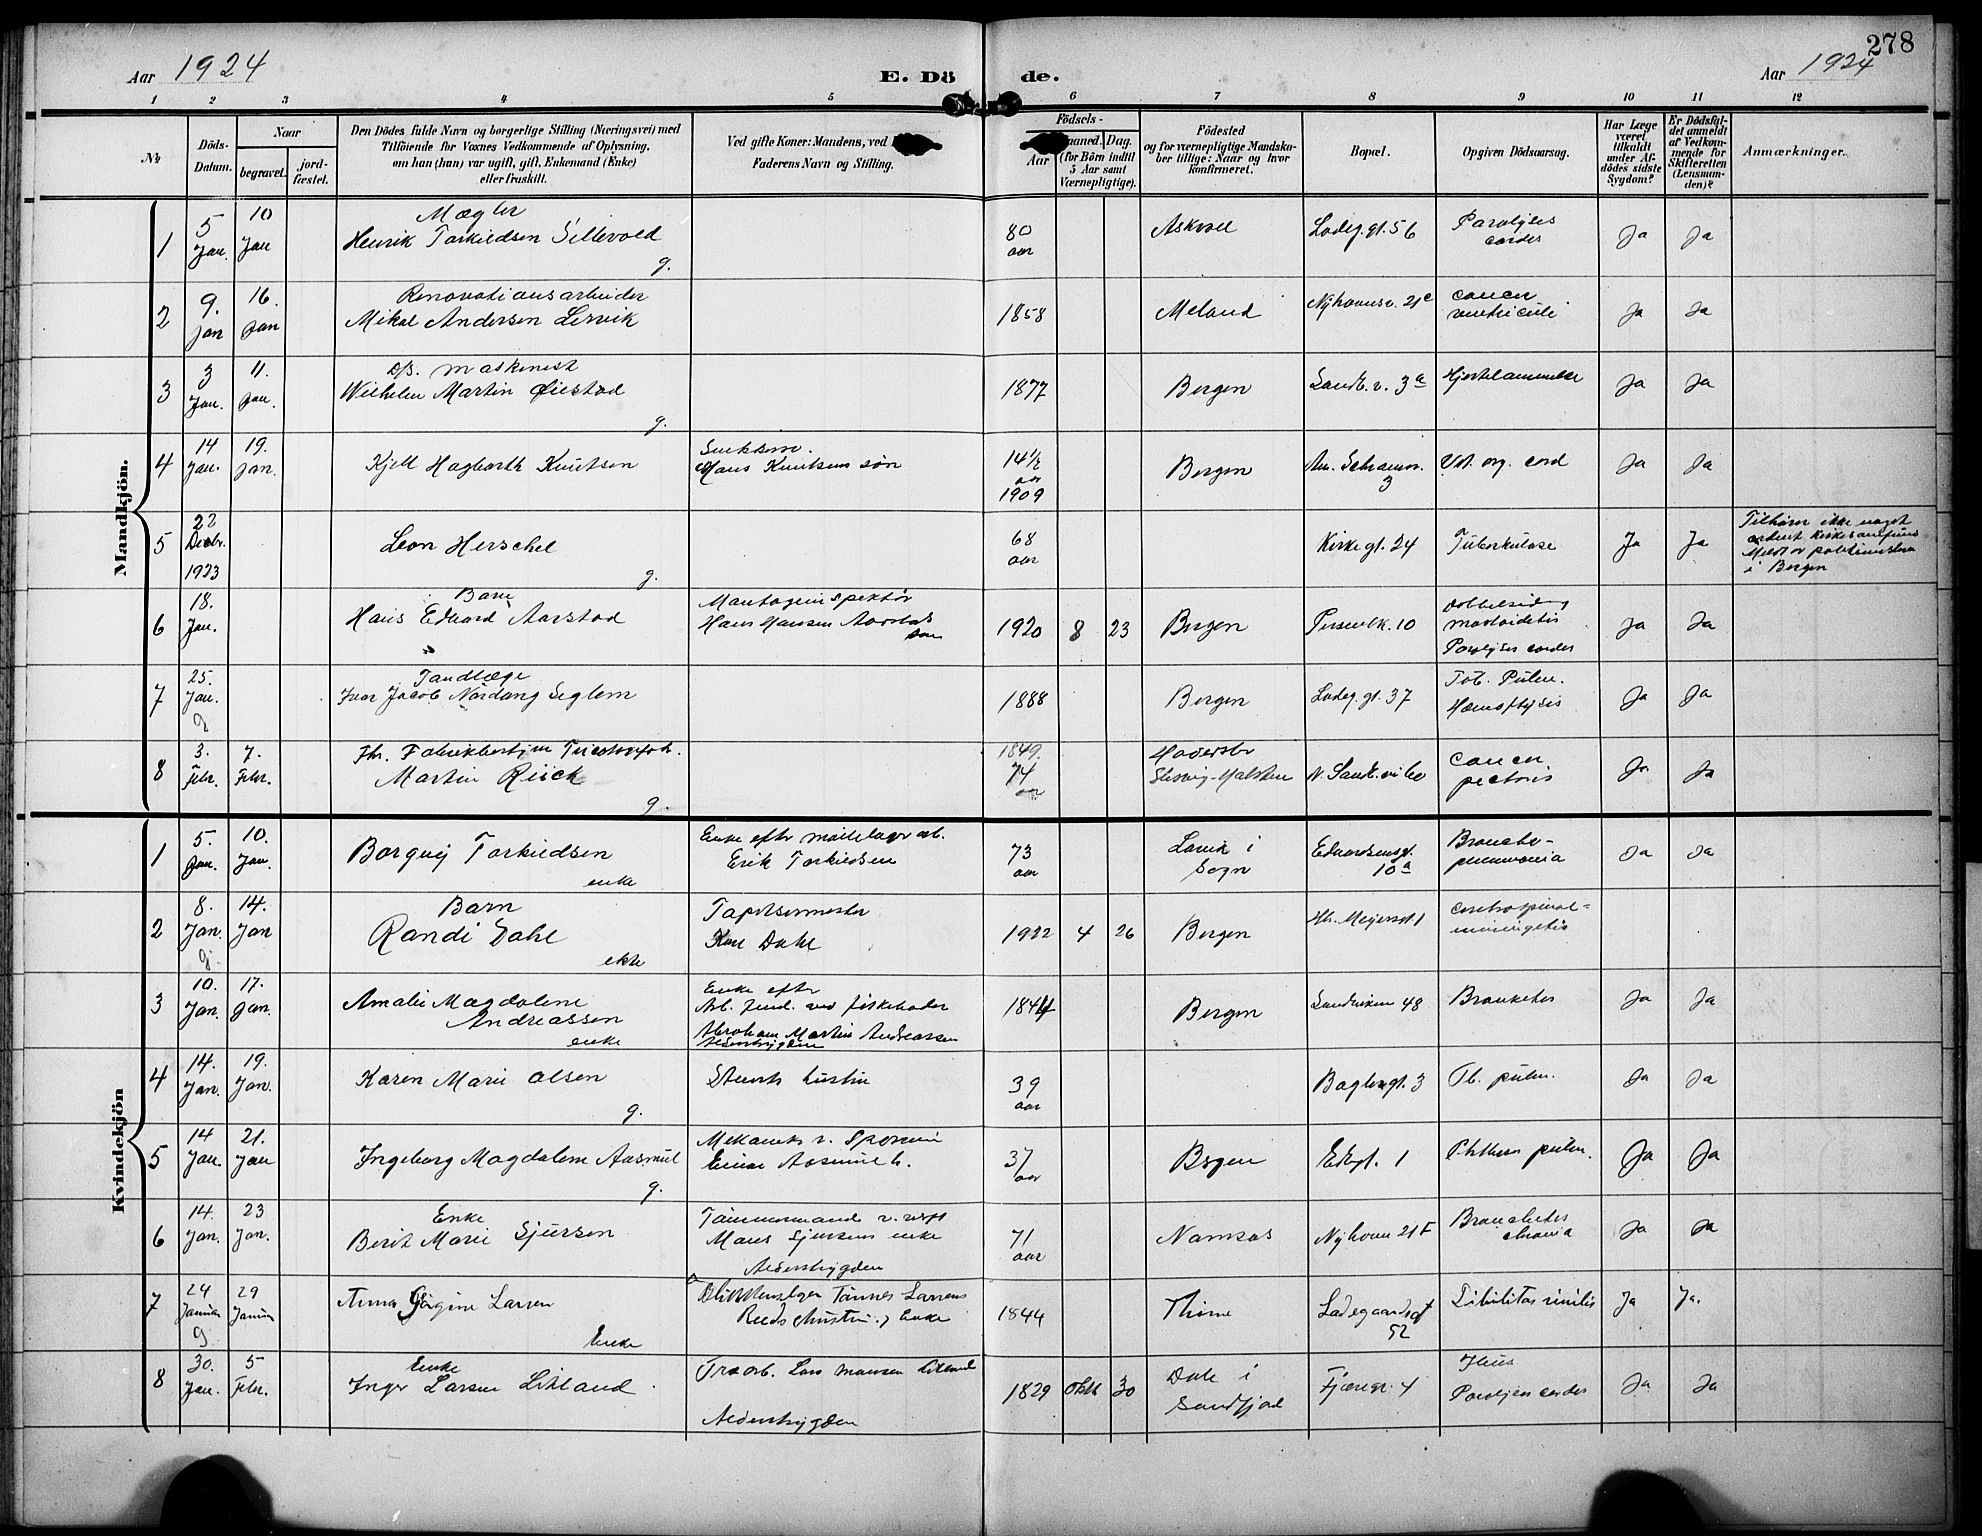 278
Aar 1924
E. Dö de.
Aar 1924
1 2 3 4 5 6 7 8 9 10 11 12
No
Döds-
Datum.
Naar
begravet.
jord-
fæstet.
Den Dödes fulde Navn og borgerlige Stilling (Næringsvei) med
Tilföiende for Voxnes Vedkommende af Oplysning,
om han (hun) var ugift, gift, Enkemand (Enke)
eller fraskilt.
Ved gifte Koner: Mandens, ved
Faderens Navn og Stilling.
Födsels-
Aar
Maaned. Dag.
(for Börn indtil
5 Aar samt
Værnepligtige).
Födested
og for værnepligtige Mandska-
ber tillige: Naar og hvor
konfirmeret.
Bopæl.
Opgiven Dödsaarsag.
Har Læge
været
tilkaldt
under Af-
dödes sidste
Sygdom?
Er Dödsfal-
det anmeldt
af Vedkom-
mende for
Skifteretten
(Lensman-
den)?
Anmærkninger.
Mandkjön.
1
5 Jan.
10 Jan
Mægler
Henrik Torkildsen Sellevold
g.
80 aar
Askvoll
Ladeg.gt. 56
Paralysis cordis
Ja
Ja
2
9. Jan
16. Jan
Renovationsarbeider
Mikal Andersen Lervik
1858
Meland
Nyhavnsv. 21c
cancer ventriculi
Ja
Ja
3
3 Jan.
11. Jan.
D/S. Maskinist
Wilhelm Martin Øiestad
g.
1877
Bergen
Sandv.v. 3a
Hjertelammelse
Ja
Ja
4
14 Jan.
19. Jan.
Kjell Hagbarth Knutsen
Hans Knutsens søn
14½ aar
1909
Bergen
3
Vit. org. cord
Ja
Ja
5
22 Decbr. 1923
Leon Herschel
g.
68 aar
Kirkegt. 24
Tuberkulose
Ja
Ja
Tilhører ikke noget
ordent kirkesamfund
i Bergen
6
18. Jan.
Barn
Hans Edvard Aarstad
Hans Hansen Aarstad
søn
1920 8 23
Bergen
Persenbk. 10
Dobbelsidig
mastoiditis
Paralysis cordis
Ja
Ja
7
25. Jan.
g
Tandlæge
Ivar Jacob Nordang Seglem
1888
Bergen
Ladeg.gt. 37
Tub. Pulm.
Hæmoptysis
Ja
Ja
8
3. Febr.
7. Febr.
Martin Risch
g.
1849
74 aar
Slesvig-Holsten
N. Sandv.vei 60
Cancer pectoris
Ja
Ja
Kvindekjön
1
5. Jan.
10. Jan.
Borgny Torkildsen
enke
Enke efter
Erik Torkildsen
73 aar
Lavik i
Sogn
Edvardsensgt. 10a
Broncho-
pneumonia
Ja
Ja
2
8. Jan.
g.
14. Jan
Barn
Randi Dahl
ekte
Tapetsermester
Dahl
1922 4 26
Bergen
Hh. Meyersgt 1
cerebrospinal-
meningitis
3
10. Jan.
17. Jan.
Amalie Magdalene
Andreassen
enke
Enke efter
Abraham Martin Andreassen
Alderstrygden
1844
Bergen
Sandviken 48
Bronkitis
Ja
Ja
4
14. Jan.
19. Jan.
Karen Marie Olsen
g.
39 aar
Baglergt. 3
Tb. pulm.
Ja
Ja
5
14 Jan.
21. Jan
Ingeborg Magdalene Aasmul
g.
37 aar
Bergen
Ekgt. 1
Phthisis pulm.
Ja
Ja
6
14. Jan.
23 Jan.
Enke
Berit Marie Sjursen
Tømmermand v. verft
Mons Sjursens enke
Alderstrygden
71 aar
Namsos
Nyhavn 21F
Bronchitis
chronica
Ja
Ja
7
24 Januar
g
29 Januar
Anna Jørgine Larsen
Enke
Tønnes Larsens
Enke
1844
Ladegaardsgt
52
Debilitas senilis
Ja
Ja.
8
30. Jan.
5 Febr.
Enke
Inger Larsen Litland
Lars Monsen Litland
Alderstrygden
1829 Okt 30
Dale i
Søndfjord
Fjæregr. 4
Ileus
Paralysis cordis
Ja
Ja